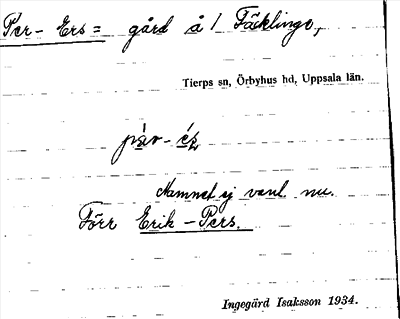 Per-Ers= gård å / Fäcklinge,
Tierps sn, Örbyhus hd, Uppsala län.
pàr-éʂ
Namnet ej vanl. nu.
Förr Erik-Pers.
Ingegärd Isaksson 1934.